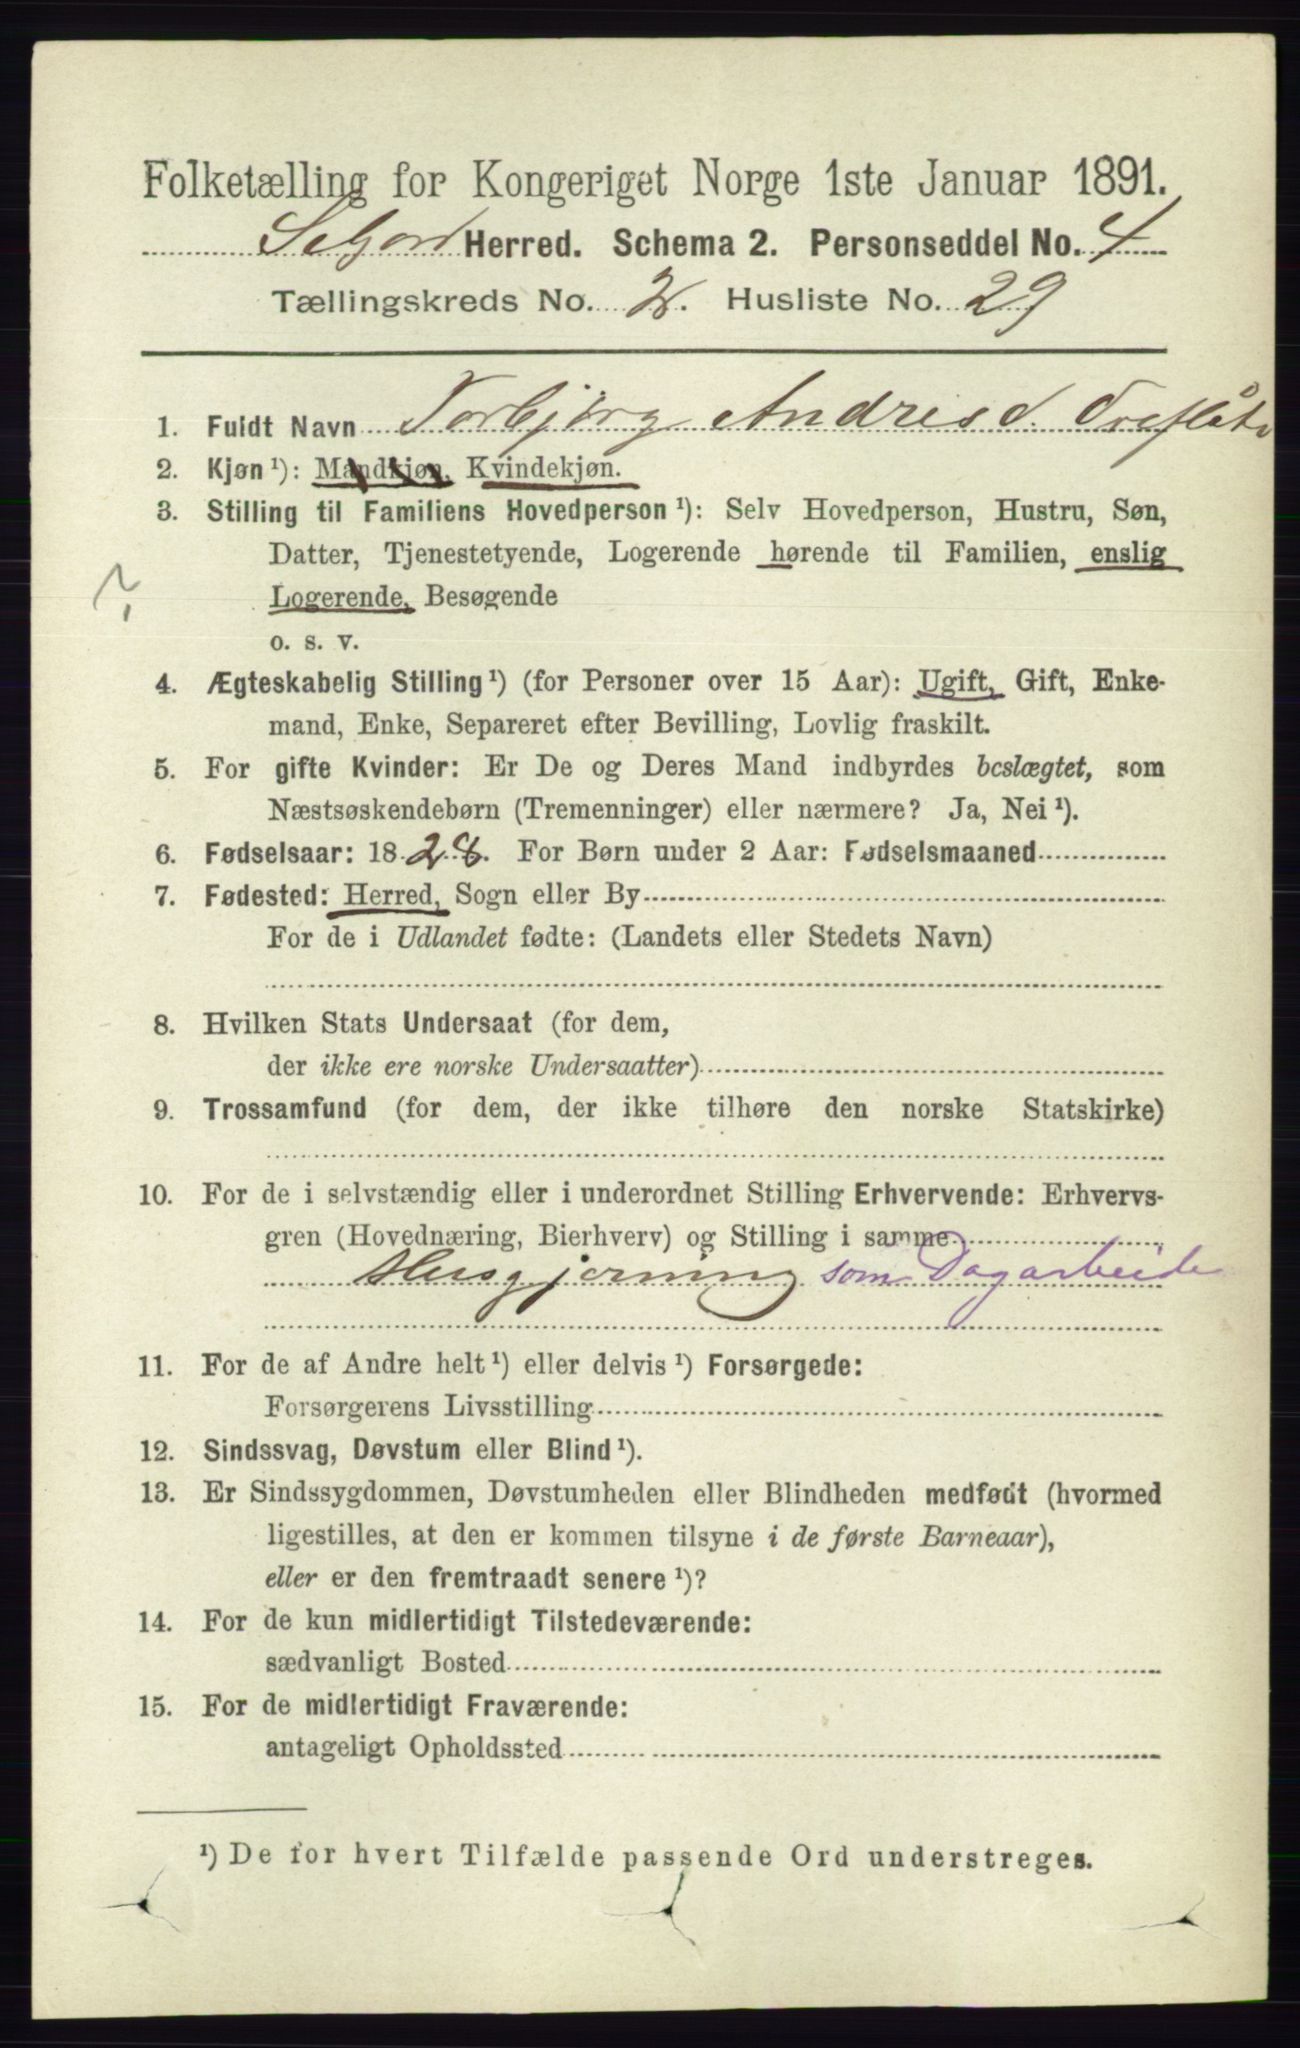 Folketælling for Kongeriget Norge 1ste Januar 1891.
Seljord Herred. Schema 2. Personseddel No. 4
Tællingskreds No. 2. Husliste No. 29
1. Fuldt Navn Torbjörg Andresd. Ovreflåt
2. Kjøn ¹): Mandkjøn, Kvindekjøn.
3. Stilling til Familiens Hovedperson ¹): Selv Hovedperson, Hustru, Søn,
Datter, Tjenestetyende, Logerende hørende til Familien, enslig
?
Logerende, Besøgende
o. s. v.
4. Ægteskabelig Stilling ¹) (for Personer over 15 Aar): Ugift, Gift, Enke-
mand, Enke, Separeret efter Bevilling, Lovlig fraskilt.
5. For gifte Kvinder: Er De og Deres Mand indbyrdes beslægtet, som
Næstsøskendebørn (Tremenninger) eller nærmere? Ja, Nei ¹).
6. Fødselsaar: 1828. For Børn under 2 Aar: Fødselsmaaned
7. Fødested: Herred, Sogn eller By
For de i Udlandet fødte: (Landets eller Stedets Navn)
8. Hvilken Stats Undersaat (for dem,
der ikke ere norske Undersaatter)
9. Trossamfund (for dem, der ikke tilhøre den norske Statskirke)
10. For de i selvstændig eller i underordnet Stilling Erhvervende: Erhvervs-
gren (Hovednæring, Bierhverv) og Stilling i samme
Husgjerning som Dagarbeide
11. For de af Andre helt ¹) eller delvis ¹) Forsørgede:
Forsørgerens Livsstilling
12. Sindssvag, Døvstum eller Blind ¹).
13. Er Sindssygdommen, Døvstumheden eller Blindheden medfødt (hvormed
ligestilles, at den er kommen tilsyne i de første Barneaar),
eller er den fremtraadt senere ¹)?
14. For de kun midlertidigt Tilstedeværende:
sædvanligt Bosted
15. For de midlertidigt Fraværende:
antageligt Opholdssted
¹) De for hvert Tilfælde passende Ord understreges.